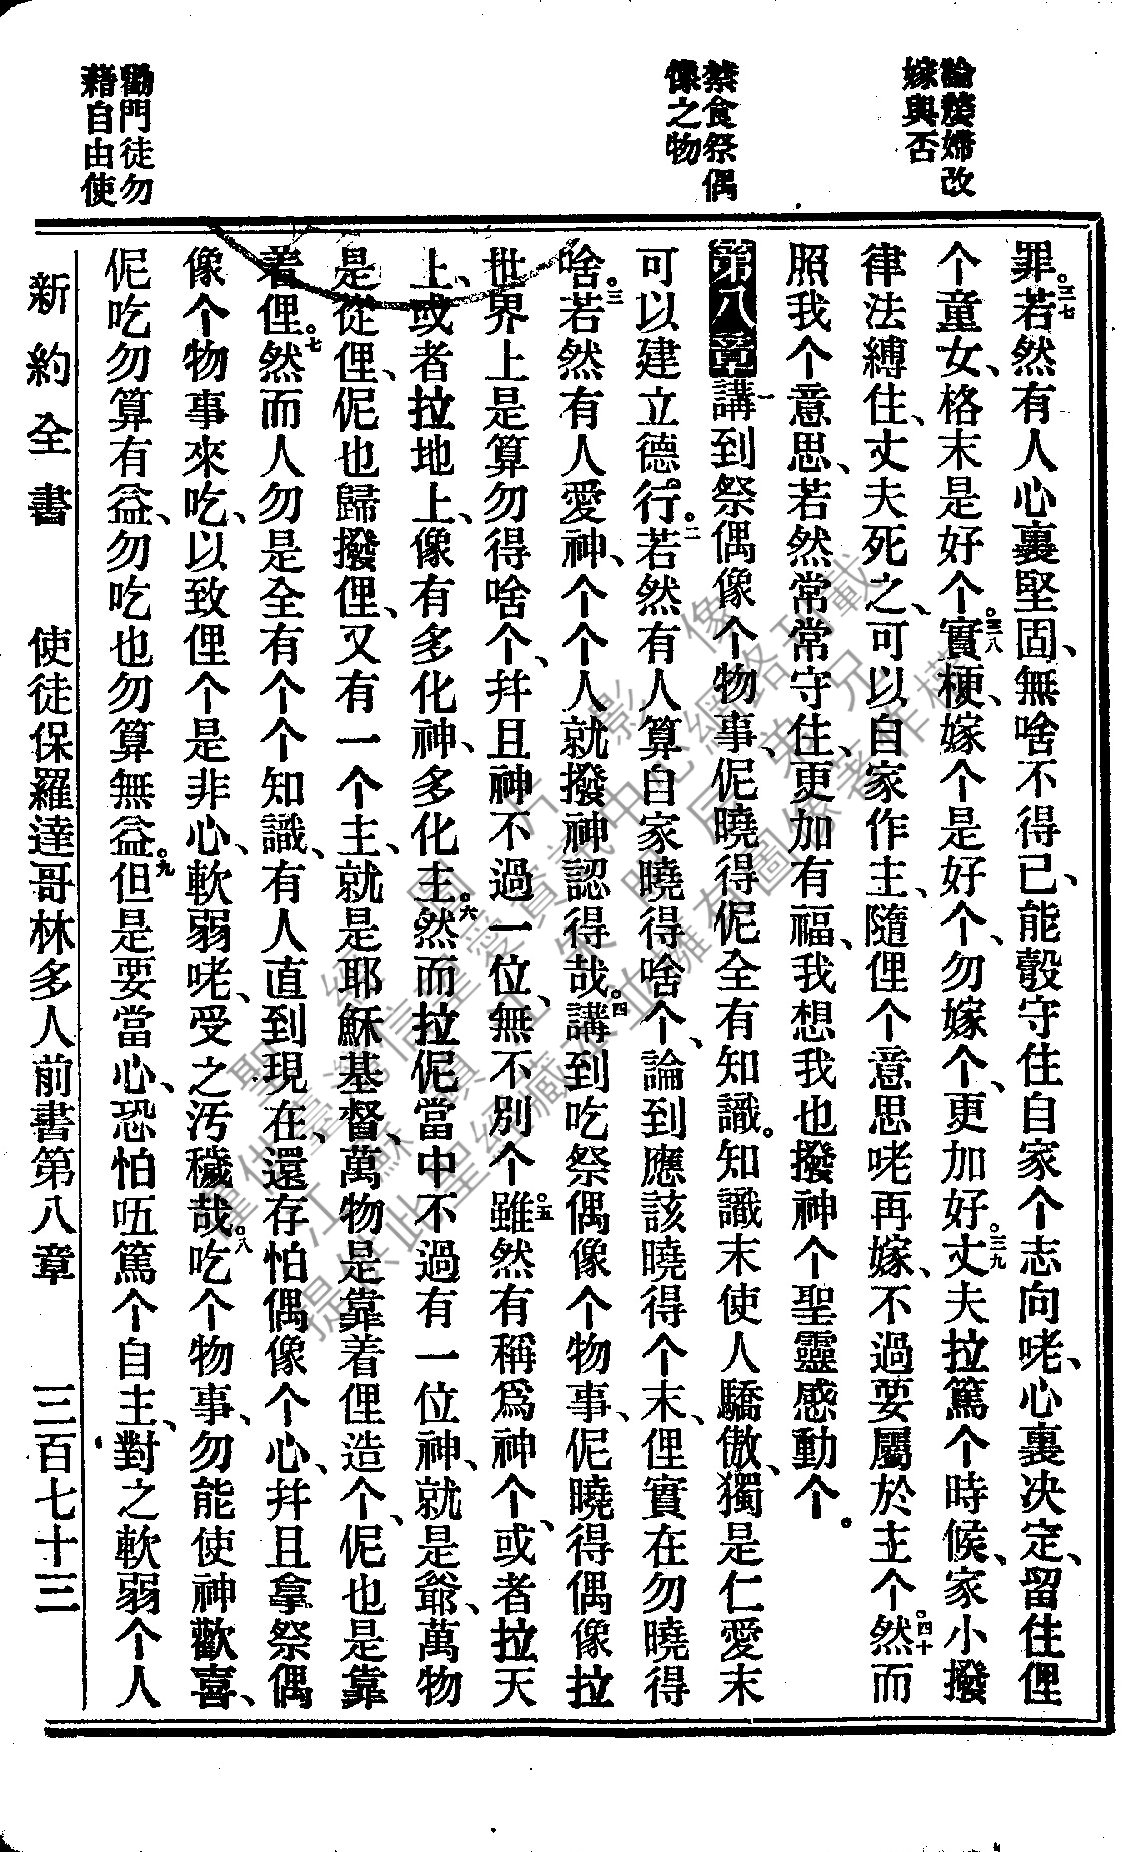 論嫠婦改
嫁與否
禁食祭偶
像之物
勸門徒勿
藉自由使
罪。三七若然有人心裏堅固、無啥不得已、能彀守住自家个志向咾、心裏决定、留住俚
个童女、格末是好个。三八實梗、嫁个是好个、勿嫁个、更加好。三九丈夫拉篤个時候、家小撥
律法縛住、丈夫死之、可以自家作主、隨俚个意思咾再嫁、不過要屬於主个。四十然而
照我个意思、若然常常守住、更加有福、我想我也撥神个聖靈感動个。
第八章 一講到祭偶像个物事、伲曉得伲全有知識。知識末使人驕傲、獨是仁愛末
可以建立德行。二若然有人算自家曉得啥个、論到應該曉得个末、俚實在勿曉得
啥。三若然有人愛神、个个人就撥神認得哉。四講到吃祭偶像个物事、伲曉得偶像拉
世界上是算勿得啥个、幷且神不過一位、無不別个。五雖然有稱爲神个、或者拉天
上、或者拉地上、像有多化神、多化主。六然而拉伲當中不過有一位神、就是爺、萬物
是從俚、伲也歸撥俚、又有一个主、就是耶穌基督、萬物是靠着俚造个、伲也是靠
着俚。七然而人勿是全有个个知識、有人直到現在、還存怕偶像个心、幷且拿祭偶
像个物事來吃、以致俚个是非心、軟弱咾、受之汚穢哉。八吃个物事、勿能使神歡喜、
伲吃勿算有益、勿吃也勿算無益。九但是要當心、恐怕㕶篤个自主、對之軟弱个人
新約全書 使徒保羅達哥林多人前書第八章 三百七十三